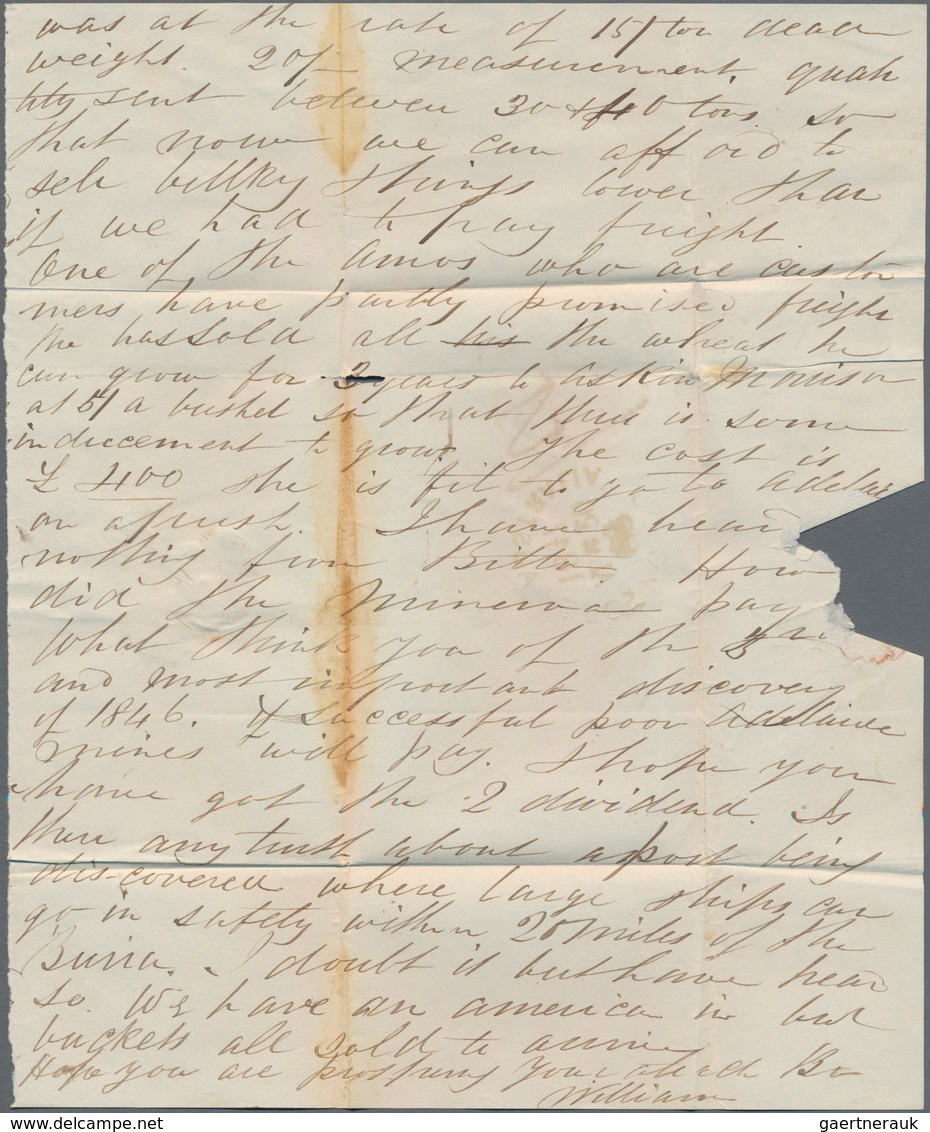 was at the rate of 15/ ton dead
weight. 20/- measurement. quan
tity sent between 30 & 40 tons. so
that now we can afford to
sell bulky things lower than
if we had to pay freight
One of the Amos who are custo
mers have partly promised freight
He has sold all his the wheat he
can grow for 3 years to Askin Morrison
at 5/ a bushel so that there is some
inducement to grow. The cost is
£400 she is fit to go to Adelai
on a push. I have hear
nothing from How
did the Minerva pay
What think you of the
and most important discovery
of 1846. 4 successful poor Adelaide
mines will pay. I hope you
have got the 2 dividend. Is
there any truth about a port being
discovered where large ships can
go in safety within 20 miles of the
Burra. I doubt it but have hear
so. We have an american in but
buckets all sold to arrive
Hope you are prospering Your attach Bro
William
gaertnerauk
www.delcampe.net